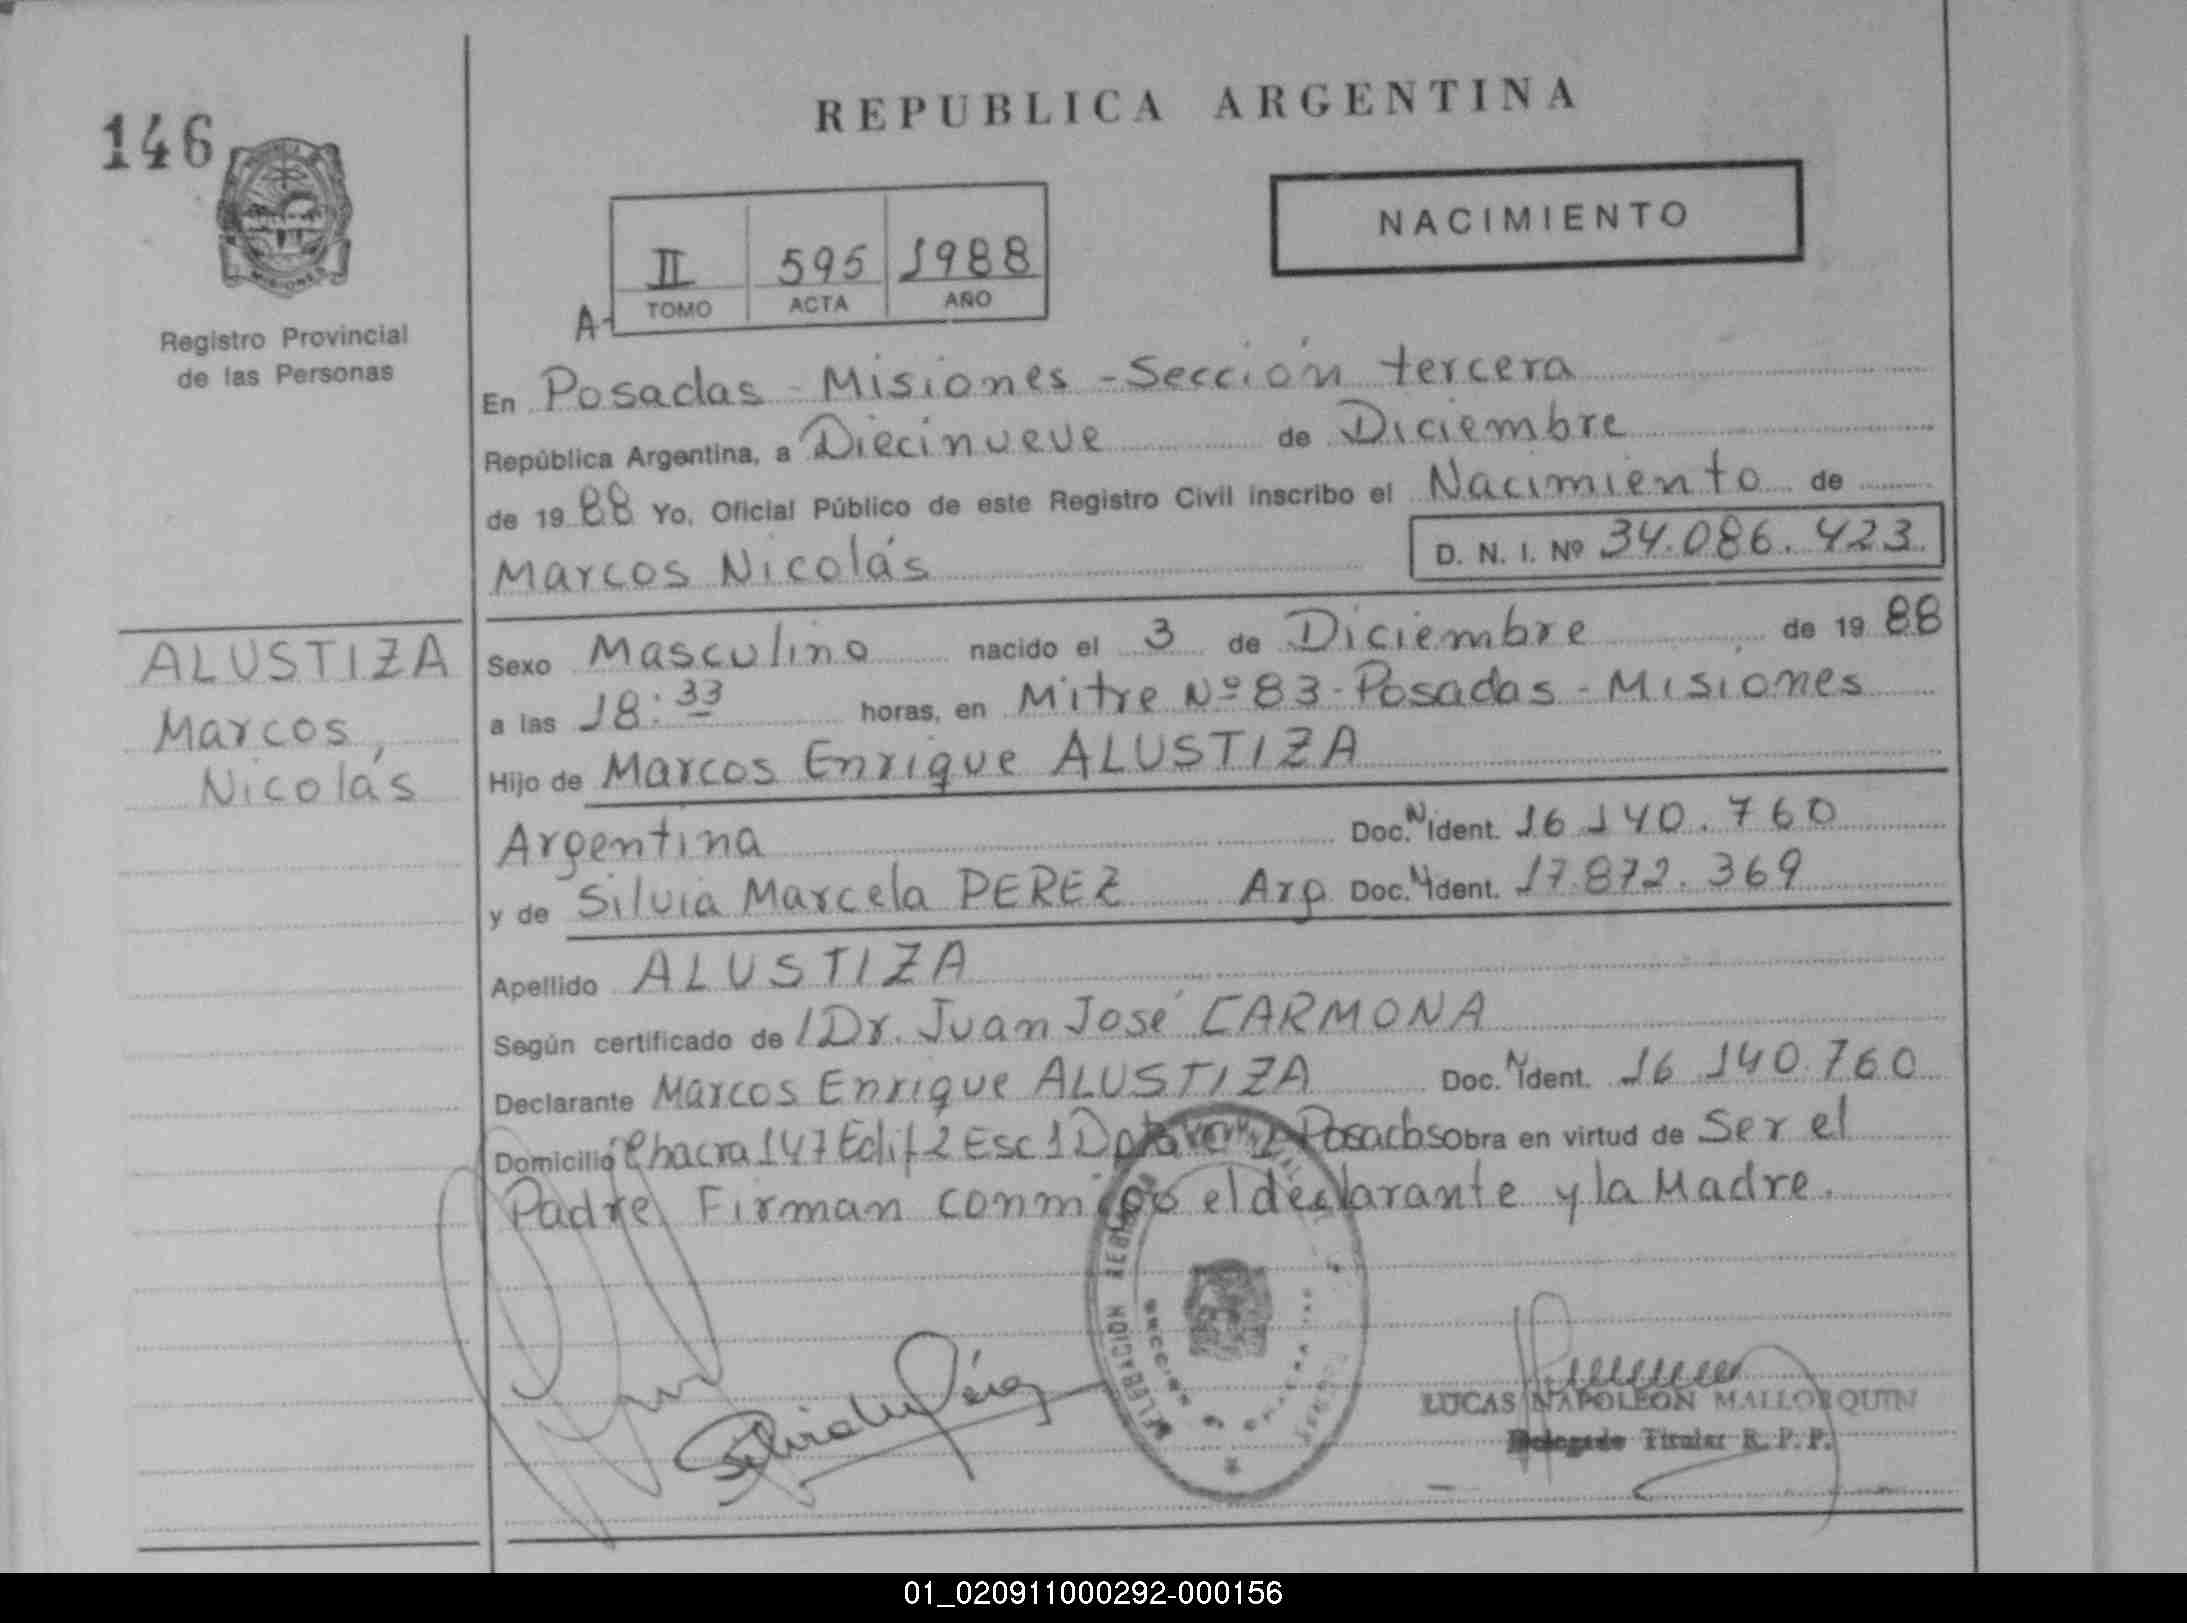 146
REPUBLICA ARGENTINA
NACIMIENTO
II 595 1988
A- TOMO ACTA AÑO
Registro Provincial
de las Personas
En Posadas - Misiones - Sección tercera
República Argentina, a Diecinueve de Diciembre
de 1988 Yo, Oficial Público de este Registro Civil inscribo el Nacimiento de
Marcos Nicolás D. N. I. Nº 34.086.423.
ALUSTIZA
Marcos,
Nicolás
Sexo Masculino nacido el 3 de Diciembre de 1988
a las 18:33 horas, en Mitre Nº 83 - Posadas - Misiones
Hijo de Marcos Enrique ALUSTIZA
Argentina Doc. N Ident. 16 140.760
y de Silvia Marcela PEREZ Arg. Doc. N Ident. 17.872.369
Apellido ALUSTIZA
Según certificado de / Dr. Juan José CARMONA
Declarante Marcos Enrique ALUSTIZA Doc. N Ident. 16 140.760
Domicilio Chacra 147 Edif 2 Esc 1 Posadas obra en virtud de Ser el
Padre, Firman conmigo el declarante y la Madre.
DELEGACION
SECCION
LUCAS NAPOLEON MALLORQUIN
Delegado Titular R. P. P.
01_020911000292-000156